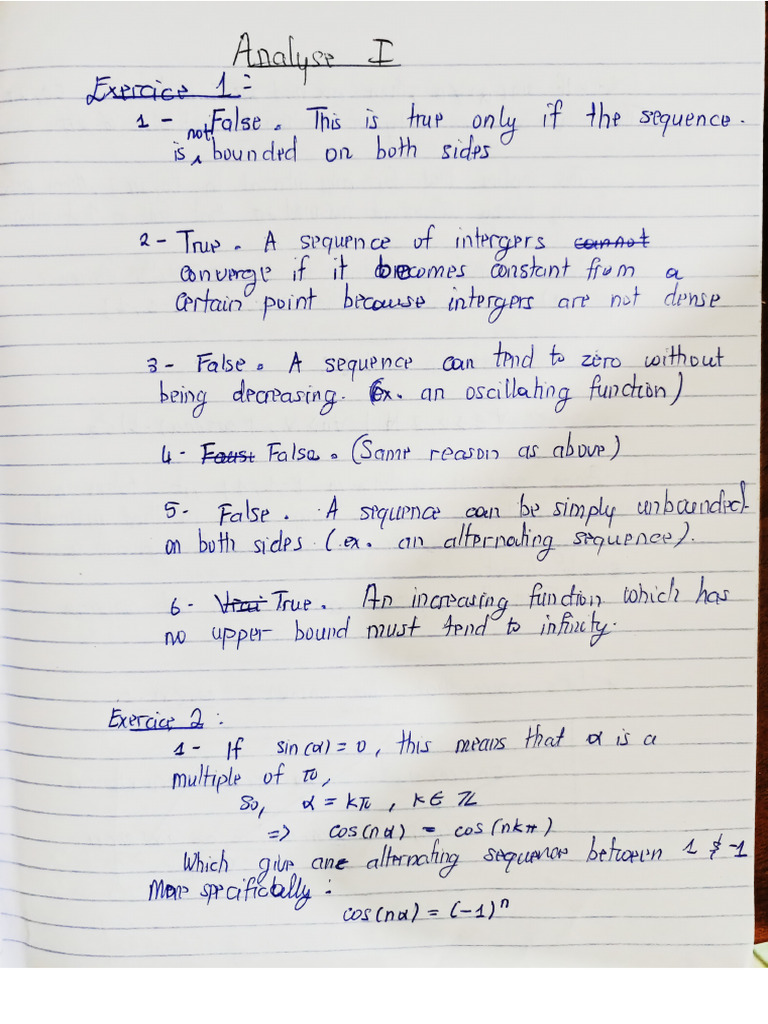 Analyse I
Exercice 1:
1 - False. This is true only if the sequence.
is not bounded on both sides
2 - True. A sequence of intergers cannot
converge if it becomes constant from a
certain point because intergers are not dense
3 - False. A sequence can tend to zero without
being decreasing. (ex. an oscillating function)
4 - Faust False. (Same reason as above)
5 - False. A sequence can be simply unbounded
on both sides (ex. an alternating sequence).
6 - Vrai True. An increasing function which has
no upper bound must tend to infinity.
Exercice 2 :
1 - If sin(α) = 0, this means that α is a
multiple of π,
So, α = kπ, k ∈ ℤ
=> cos(nα) = cos(nkπ)
Which give an alternating sequence between 1 & -1
More specifically :
cos(nα) = (-1)ⁿ